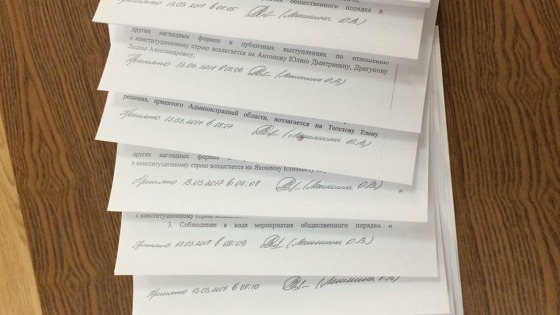 общественного порядка и
Принято 13.03.2017 в 08:05 (Мешнина О.В.)
других наглядных формах и публичных выступлениях по отношению
к конституционному строю возлагается на Антонову Юлию Дмитриевну,
Принято 13.03.2017 в 08:06 (Мешнина О.В.)
решения, принятого Администрацией области, возлагается на Елену
Принято 13.03.2017 в 08:07 (Мешнина О.В.)
других наглядных формах
к конституционному строю возлагается на Яковлеву
Принято 13.03.2017 в 08:08 (Мешнина О.В.)
к конституционному строю возлагается на
3. Соблюдение в ходе мероприятия общественного порядка и
Принято 13.03.2017 в 08:09 (Мешнина О.В.)
Принято 13.03.2017 в 08:10 (Мешнина О.В.)